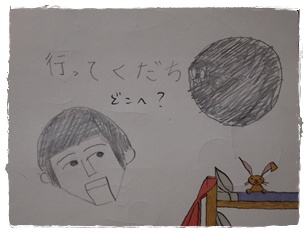 行ってくだち
どこへ?